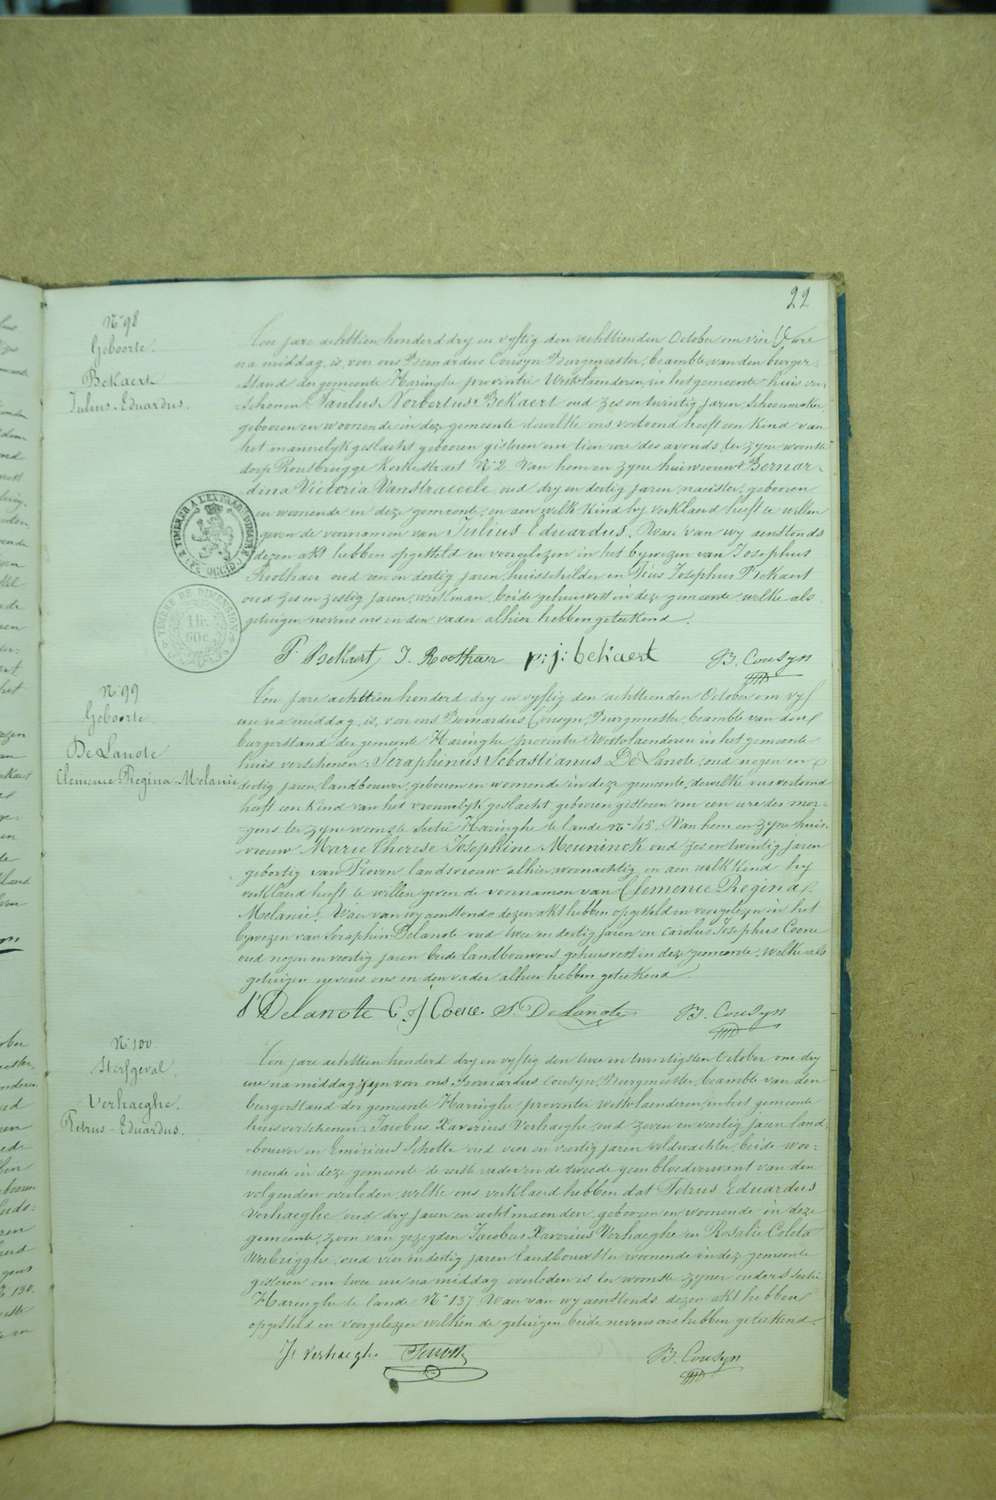 22
N° 98
Geboorte.
Bekaert
Julius-Eduardus.
Ten jare achttien honderd dry en vyftig den achttienden October om vier ure
na middag, is voor ons Bernardus Cousyn Burgmeester, beambte van den burger-
stand der gemeente Haringhe provintie Westvlaenderen in het gemeente huis ver-
schenen Paulus Norbertus Bekaert oud zes en twintig jaren, schoenmaker
geboren en woonende in deze gemeente dewelke ons vertoond heeft een kind van
het mannelyk geslacht geboren gisteren om tien ure des avonds, ter zyne woonste
dorp Rousbrugge Kerkestraet N° 2. Van hem en zyne huisvrouwe Bernar-
dina Victoria Vanstraceele oud dry en dertig jaren, naeister, geboren
en woonende in deze gemeente, en aen welk kind hy verklaerd heeft te willen
geven de voornamen van Julius Eduardus. Waer van wy aenstonds
dezen akt hebben opgesteld en voorgelezen in het bywezen van Josephus
Roothaer oud een en dertig jaren, huisschilder en Pius Josephus Bekaert
oud zes en zestig jaren, werkman, beide gehuisvest in deze gemeente welke als
getuigen nevens ons en den vader alhier hebben geteekend.
P Bekaert J. Roothaer p: j: bekaert B. Cousyn
TIMBRER A L'EXTRAORDINAIRE
TIMBRE DE DIMENSION
1 fr.
60c
N° 99
Geboorte
De Lanote
Clemence-Regina-Melanie
Ten jare achttien honderd dry en vyftig den achttienden October om vyf
ure na middag, is, voor ons Bernardus Cousyn, Burgmeester, beambte van den
burgerstand der gemeente Haringhe provintie Westvlaenderen in het gemeente
huis verschenen Seraphinus Sebastianus De Lanote, oud negen en
dertig jaren, landbouwer, geboren en woonende in deze gemeente, dewelke ons vertoond
heeft een kind van het vrouwelyk geslacht, geboren gisteren om een ure der mor-
gens ter zyne woonste Sectie Haringhe te lande N° 145. Van hem en zyne huis-
vrouw Marie Therese Josephine Meuninck oud zes en twintig jaren
geboortig van Proven landvrouw alhier woonachtig en aen welk kind hy
verklaerd heeft te willen geven de voornamen van Clemence Regina
Melanie. Waer van wy aenstonds dezen akt hebben opgesteld en voorgelezen in het
bywezen van Seraphin Delanote oud twee en dertig jaren en Carolus Josephus Coene
oud negen en veertig jaren beide landbouwers gehuisvest in deze gemeente, welke als
getuigen nevens ons en den vader alhier hebben geteekend
S Delanote C. j Coene S. De Lanote B. Cousyn
N° 100
Sterfgeval.
Verhaeghe.
Petrus-Eduardus.
Ten jare achttien honderd dry en vyftig den twee en twintigsten October om dry
ure na middag zyn voor ons Bernardus Cousyn, Burgmeester, beambte van den
burgerstand der gemeente Haringhe provintie Westvlaenderen in het gemeente
huis verschenen Jacobus Xaverius Verhaeghe oud zeven en veertig jaren land-
bouwer en Schotte oud vier en veertig jaren veldwachter, beide woo-
nende in deze gemeente de eerste vader en de tweede geen bloedverwant van den
volgenden overleden, welke ons verklaerd hebben dat Petrus Eduardus
Verhaeghe oud dry jaren en acht maenden, geboren en woonende in deze
gemeente, zoon van gezegden Jacobus Xaverius Verhaeghe en Rosalie Coleta
Werbrigghe, oud vier en dertig jaren landbouwster woonende in deze gemeente
gisteren om twee ure na middag overleden is ter woonste zyner ouders Sectie
Haringhe te lande N° 137. Waer van wy aenstonds dezen akt hebben
opgesteld en voorgelezen welken de getuigen beide nevens ons hebben geteekend.
Verhaeghe B. Cousyn